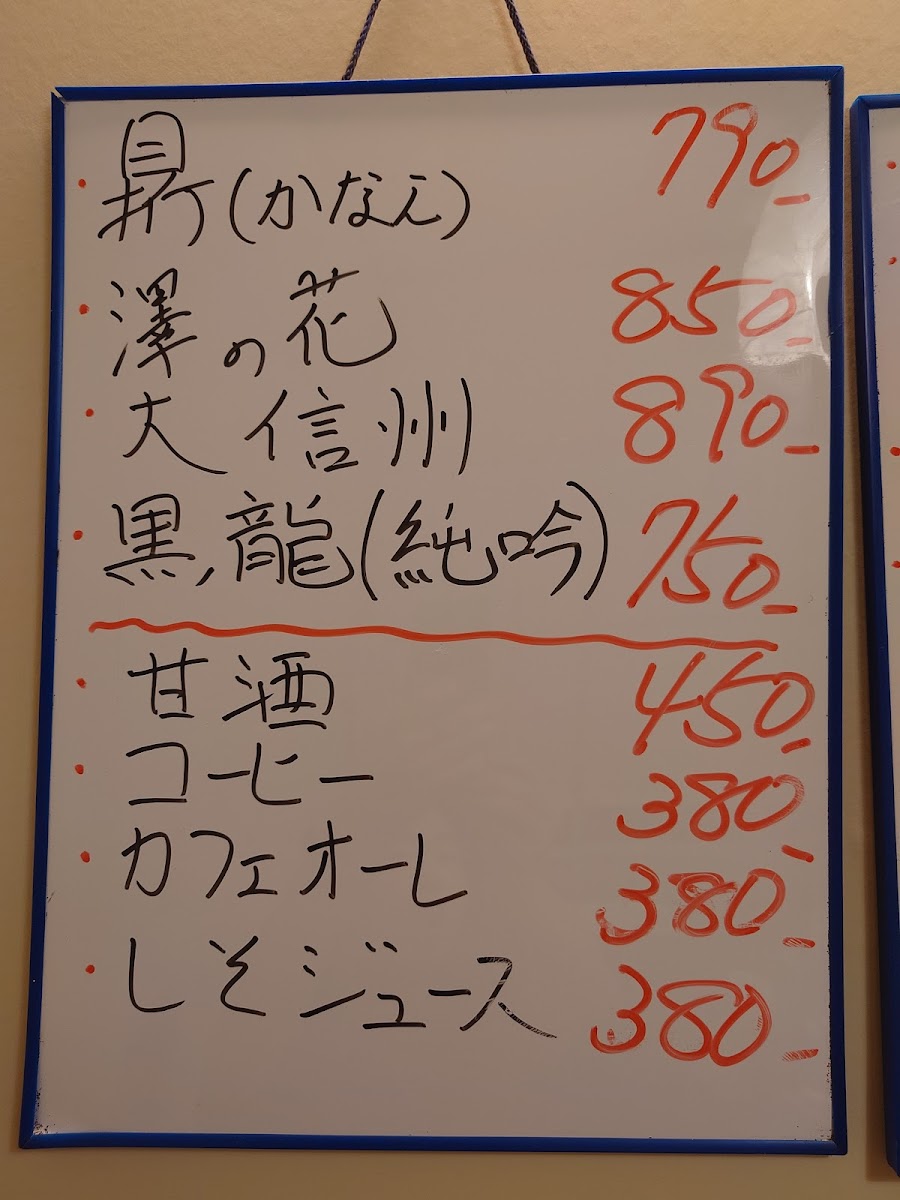 ・鼎(かなえ) 790-
・澤の花 850-
・大信州 890-
・黒龍(純吟) 750-
・甘酒 450-
・コーヒー 380-
・カフェオーレ 380-
・しそジュース 380-